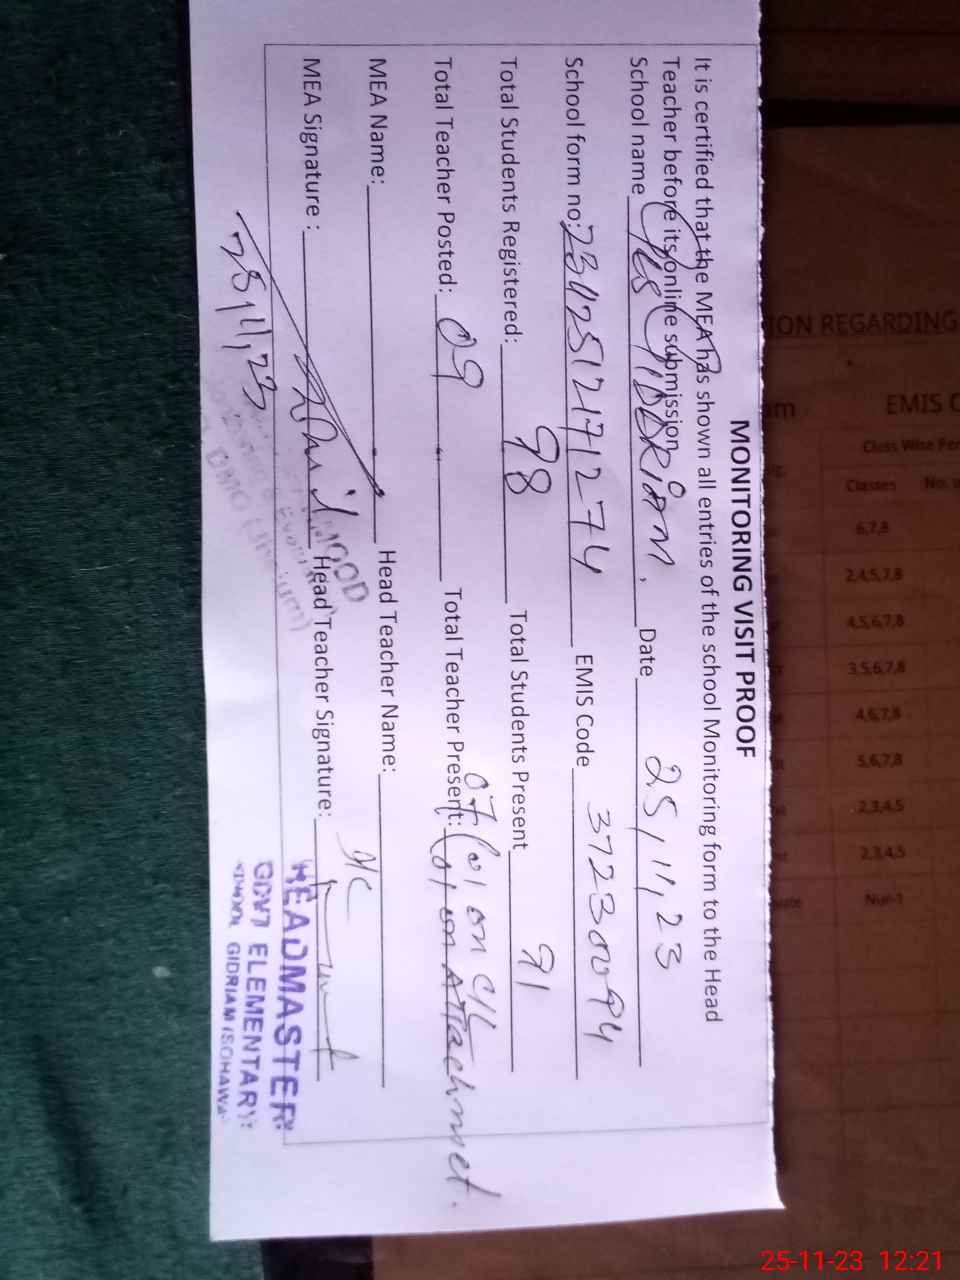 MONITORING VISIT PROOF
It is certified that the MEA has shown all entries of the school Monitoring form to the Head
Teacher before its online submission.
School name GES GIDDRIAM. Date 25,11,23
School form no: EMIS Code 37230094
Total Students Registered: 98 Total Students Present 91
Total Teacher Posted: 09 Total Teacher Present: 07 (01 on C/L
01 on Attachmet.
MEA Name: Head Teacher Name:
MEA Signature : Head Teacher Signature:
HEADMASTER
GOVT ELEMENTARY
GIDRIAM (SOHAWA
MOOD
DMO
ION REGARDING
EMIS C
Class Wise Per
Classes No.
6,7,8
2,4,5,7,8
4,5,6,7,8
3,5,6,7,8
4,6,7,8
5,6,7,8
2,3,4,5
2,3,4,5
Nur-1
25-11-23 12:21